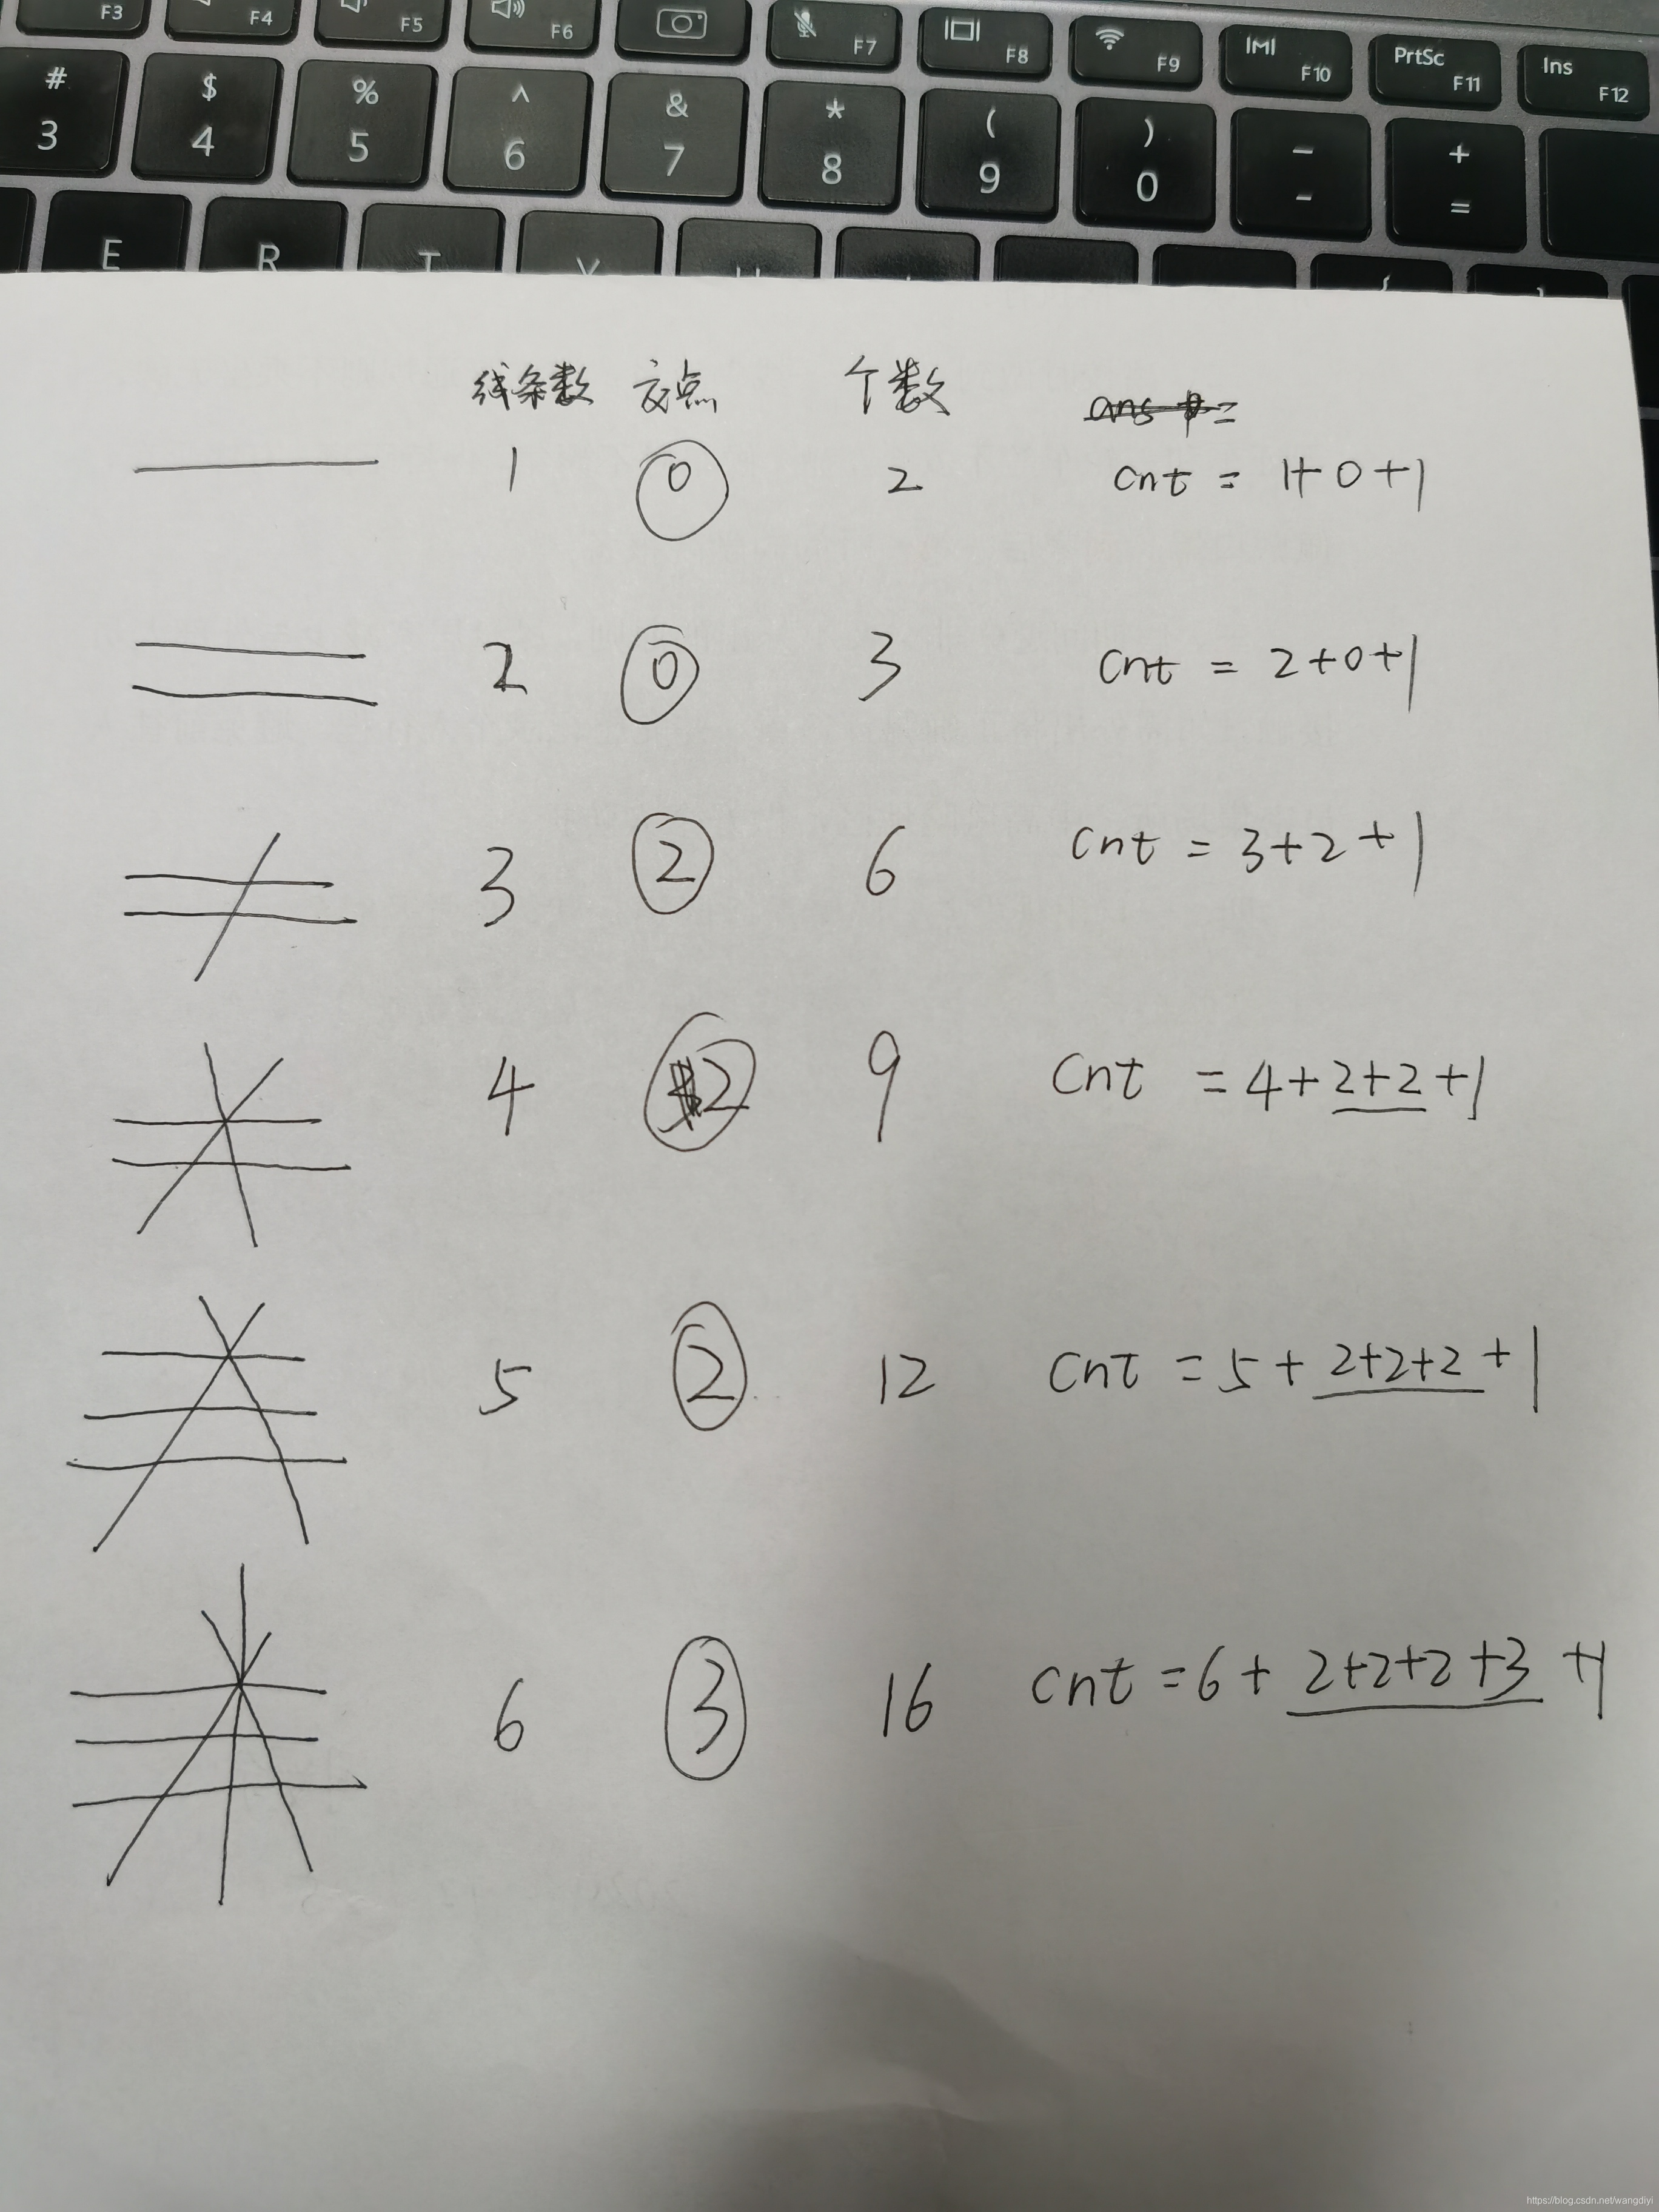 F3 F4 F5 F6 F7 F8 F9 IMI F10 PrtSc F11 Ins F12
# $ % ^ & * ( ) – +
3 4 5 6 7 8 9 0 - =
E R T Y U
线条数 交点 个数 ans +=
1 0 2 cnt = 1+0+1
2 0 3 cnt = 2+0+1
3 2 6 cnt = 3+2+1
4 2 9 cnt = 4+2+2+1
5 2 12 cnt = 5+2+2+2+1
6 3 16 cnt = 6+2+2+2+3+1
https://blog.csdn.net/wangdiyi